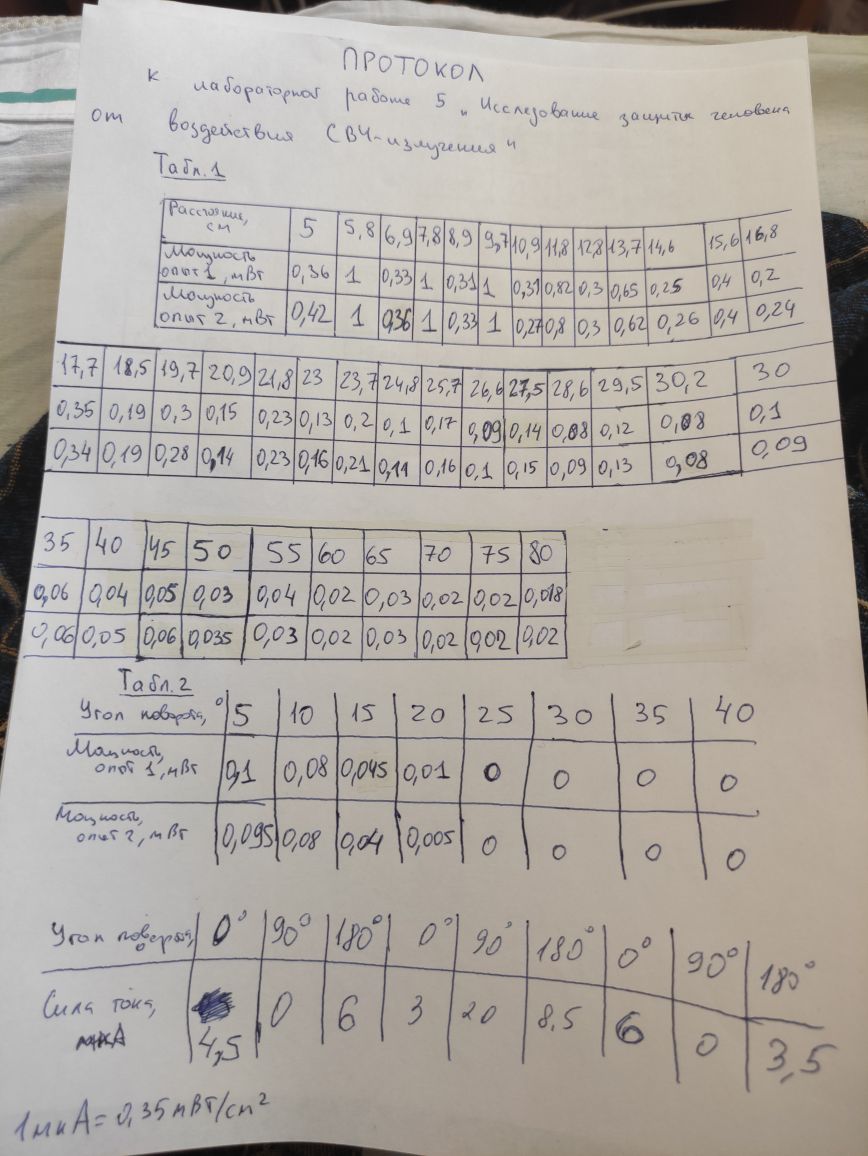 ПРОТОКОЛ
к лабораторной работе 5 „Исследование защиты человека
от воздействия СВЧ-излучения"
Табл. 1
Расстояние, см 5 5,8 6,9 7,8 8,9 9,7 10,9 11,8 12,8 13,7 14,6 15,6 16,8
Мощность опыт 1, мВт 0,36 1 0,33 1 0,31 1 0,31 0,82 0,3 0,65 0,25 0,4 0,2
Мощность опыт 2, мВт 0,42 1 0,36 1 0,33 1 0,27 0,8 0,3 0,62 0,26 0,4 0,24
17,7 18,5 19,7 20,9 21,8 23 23,7 24,8 25,7 26,6 27,5 28,6 29,5 30,2 30
0,35 0,19 0,3 0,15 0,23 0,13 0,2 0,1 0,17 0,09 0,14 0,08 0,12 0,08 0,1
0,34 0,19 0,28 0,14 0,23 0,16 0,21 0,11 0,16 0,1 0,15 0,09 0,13 0,08 0,09
35 40 45 50 55 60 65 70 75 80
0,06 0,04 0,05 0,03 0,04 0,02 0,03 0,02 0,02 0,018
0,06 0,05 0,06 0,035 0,03 0,02 0,03 0,02 0,02 0,02
Табл. 2
Угол поворота, ° 5 10 15 20 25 30 35 40
Мощность, опыт 1, мВт 0,1 0,08 0,045 0,01 0 0 0 0
Мощность, опыт 2, мВт 0,095 0,08 0,04 0,005 0 0 0 0
Угол поворота, ° 0° 90° 180° 0° 90° 180° 0° 90° 180°
Сила тока, мкА 4,5 0 6 3 20 8,5 6 0 3,5
1мкА = 0,35 мВт/см²